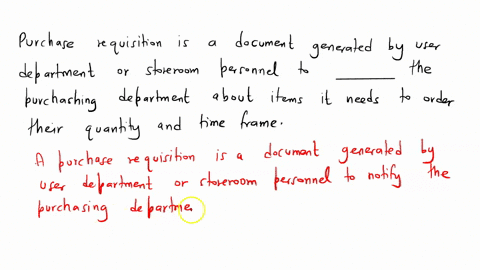 Purchase requisition is a document generated by user
department or storeroom personnel to ______ the
purchashing department about items it needs to order
their quantity and time frame.
A purchase requisition is a document generated by
user department or storeroom personnel to notify the
purchasing departme